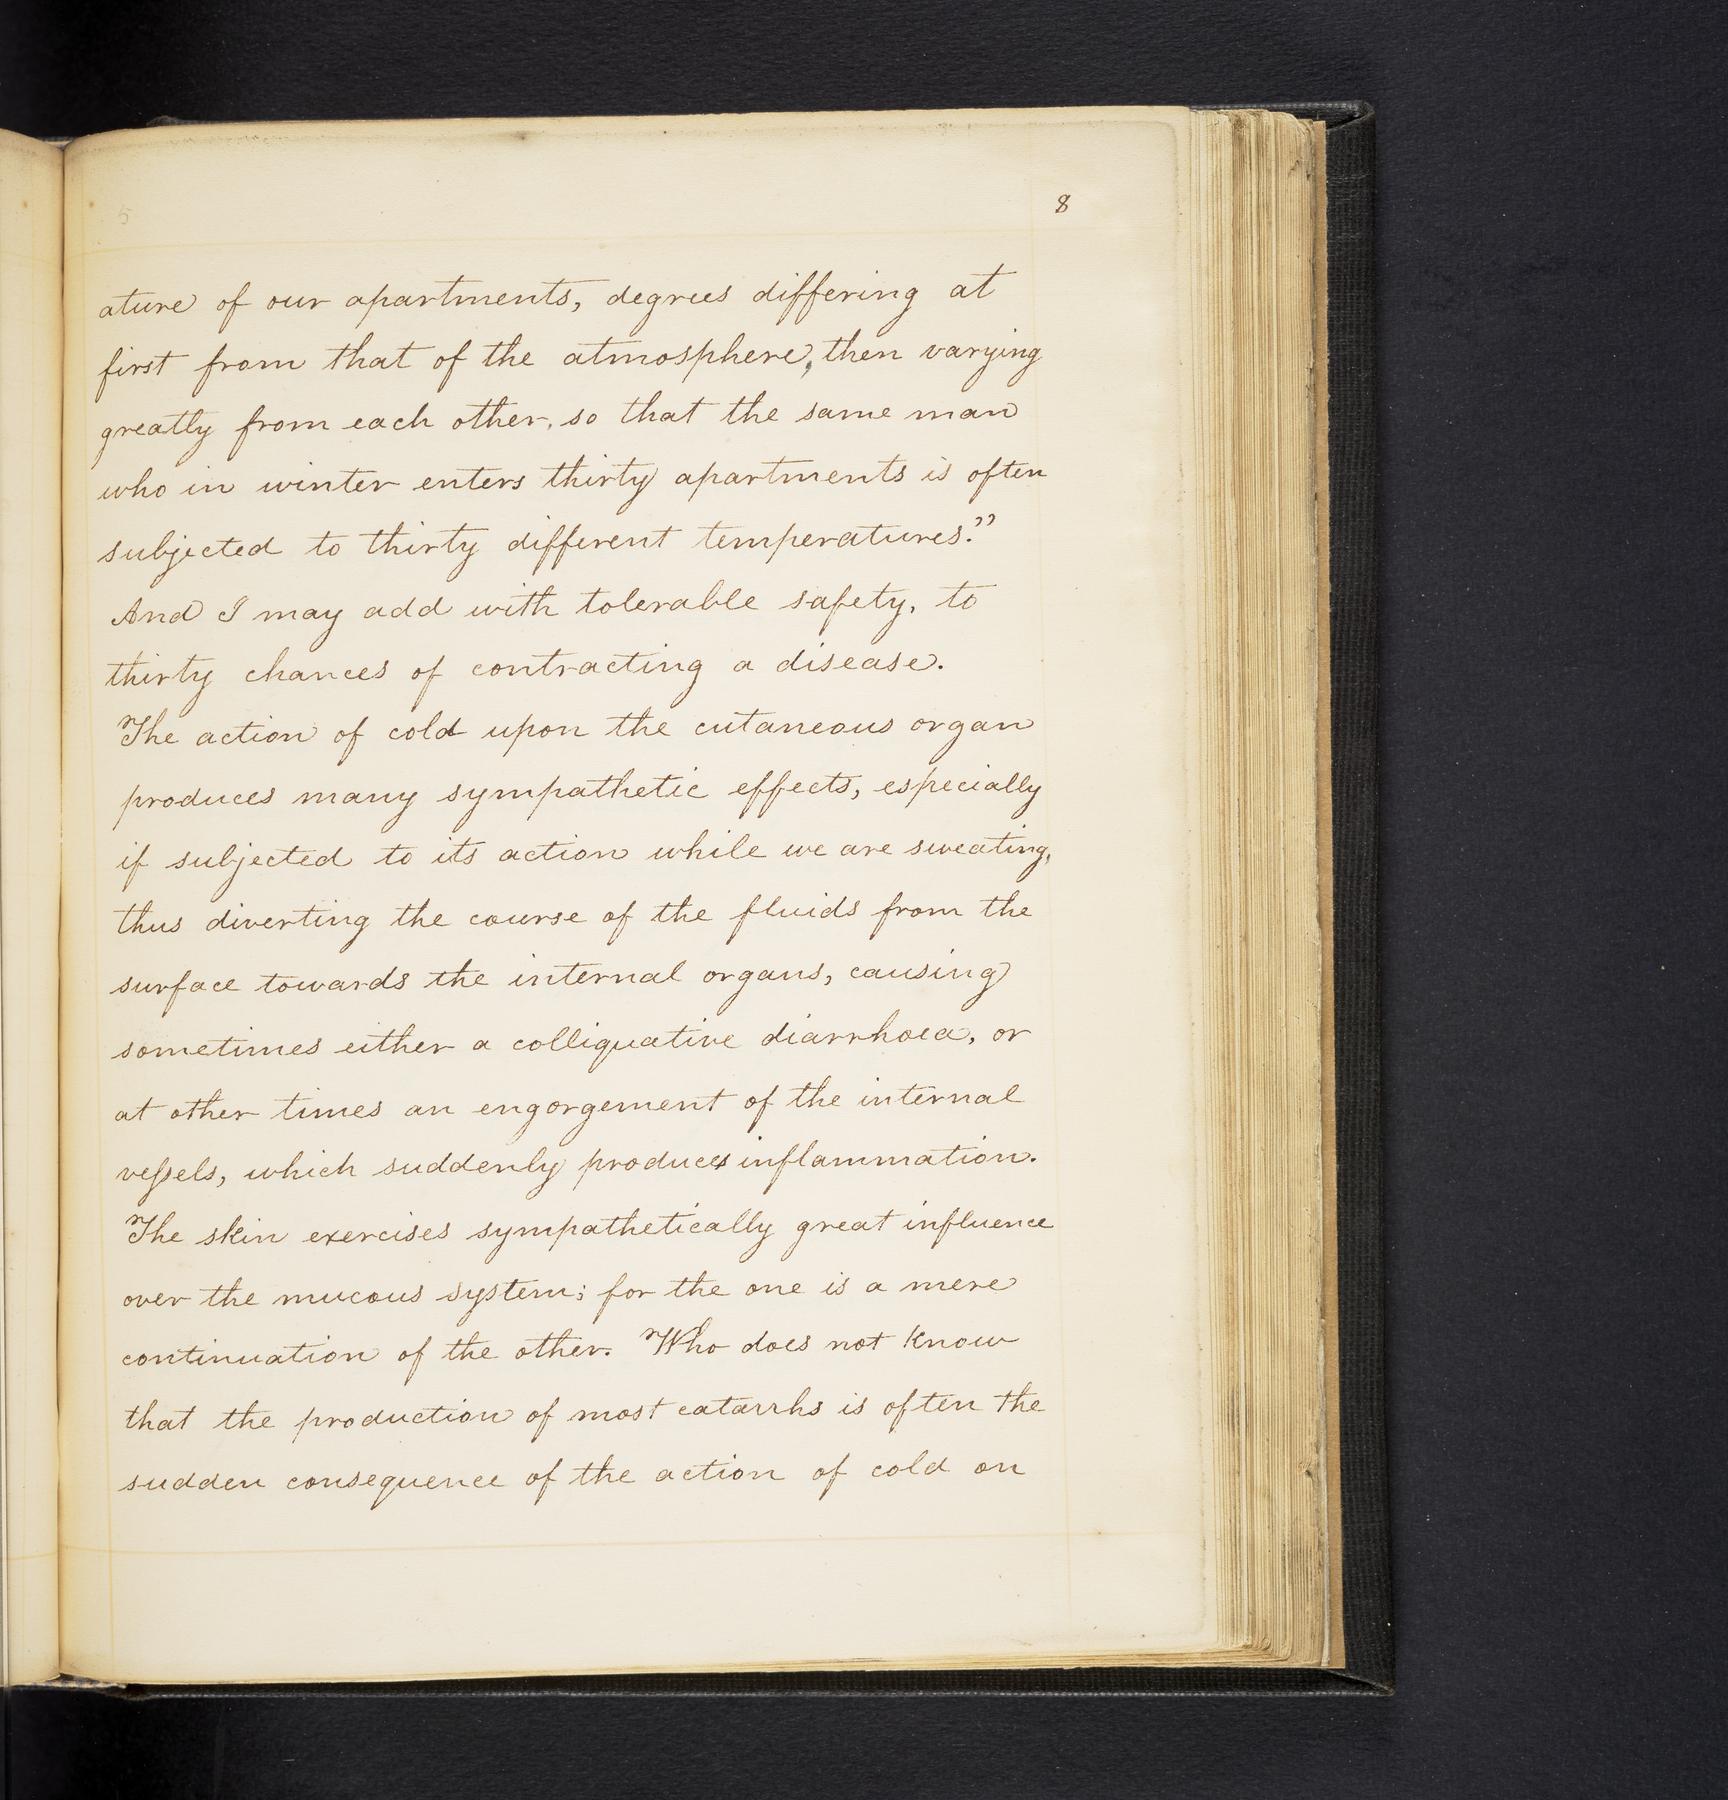 5
8
ature of our apartments, degrees differing at
first from that of the atmosphere, then varying
greatly from each other, so that the same man
who in winter enters thirty apartments is often
subjected to thirty different temperatures."
And I may add with tolerable safety, to
thirty chances of contracting a disease.
The action of cold upon the cutaneous organ
produces many sympathetic effects, especially
if subjected to its action while we are sweating,
thus diverting the course of the fluids from the
surface towards the internal organs, causing
sometimes either a colliquative diarrhoea, or
at other times an engorgement of the internal
veſsels, which suddenly produces inflammation.
The skin exercises sympathetically great influence
over the mucous system; for the one is a mere
continuation of the other. Who does not know
that the production of most catarrhs is often the
sudden consequence of the action of cold on